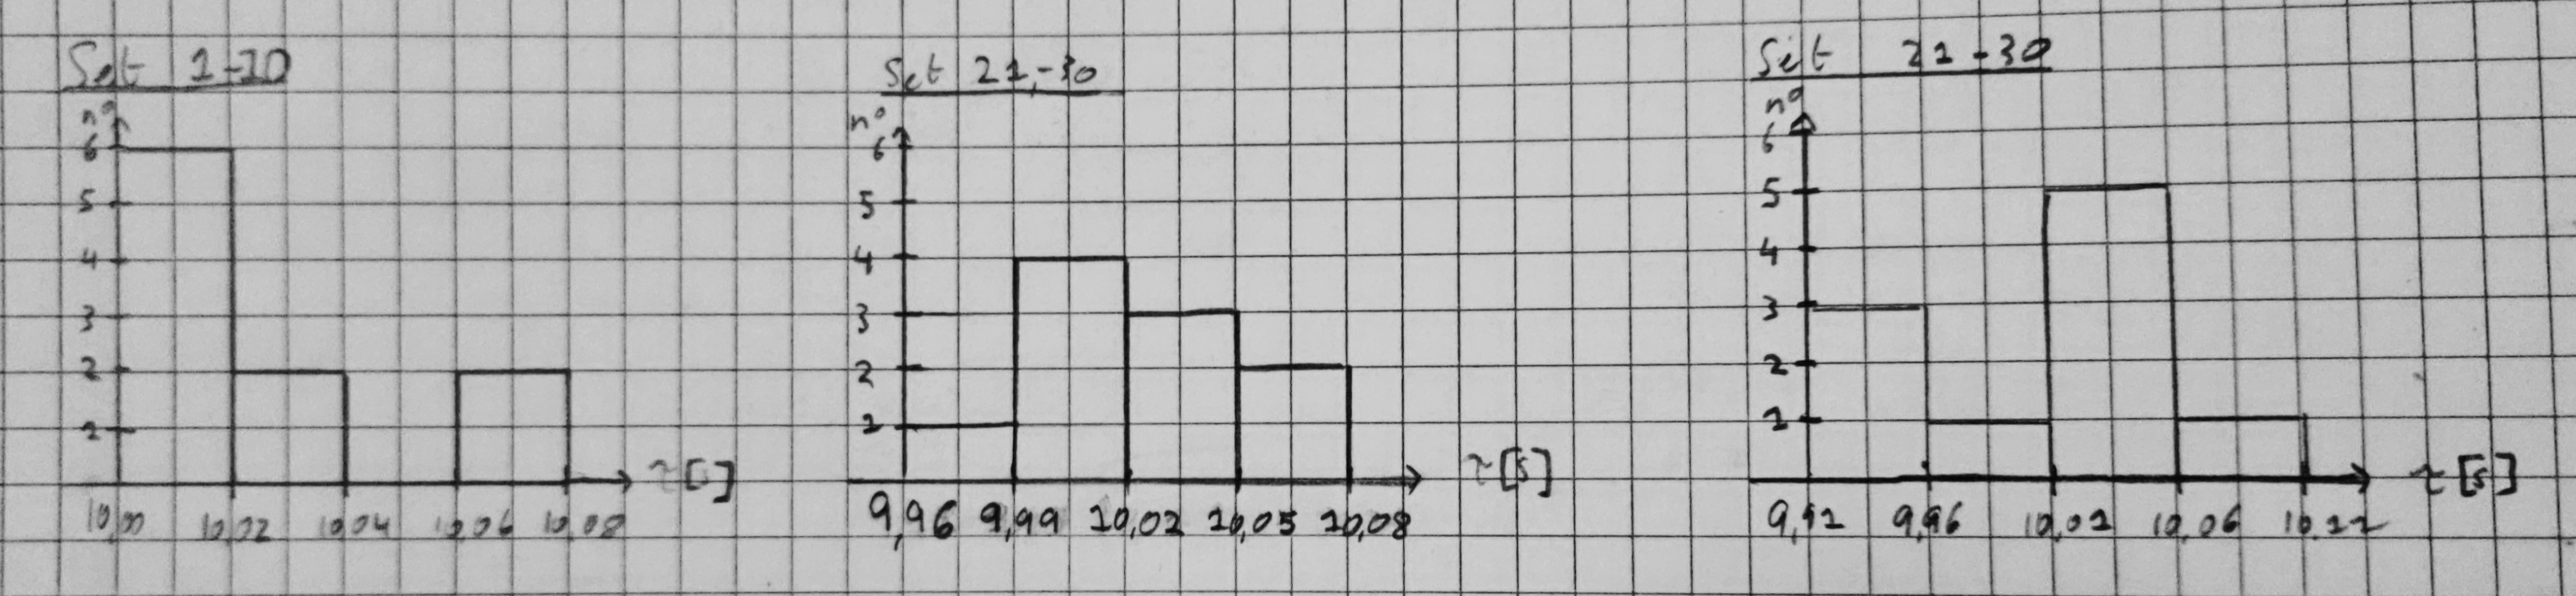 Set 1-10
n°
6
5
4
3
2
1
10,00 10,02 10,04 10,06 10,08
τ[s]
Set 21,-30
n°
6
5
4
3
2
1
9,96 9,99 10,02 10,05 10,08
τ[s]
Set 21-30
n°
6
5
4
3
2
1
9,91 9,96 10,01 10,06 10,11
τ[s]